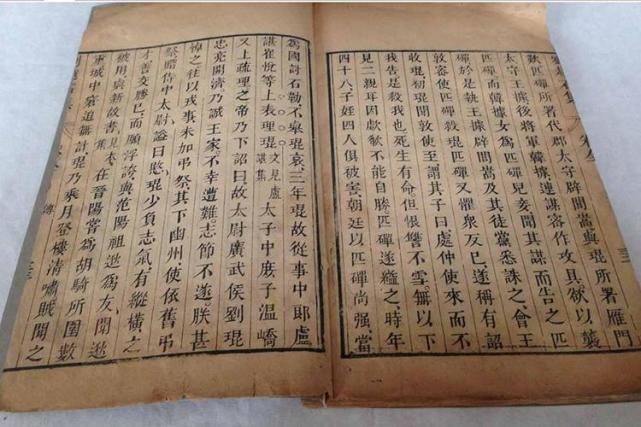 欲匹磾所署代郡太守辟閭嵩與琨所署鴈門
太守王據後將軍韓據連謀密作攻具欲以襲
匹磾而韓據女爲匹磾兒妾聞其謀而告之匹
磾於是執王據辟閭嵩及其徒黨悉誅之會王
敦密使匹磾殺琨匹磾又懼衆反已遂稱有詔
收琨初琨聞敦使至謂其子曰處仲使來而不
我告是殺我也死生有命但恨讐不雪無以下
見二親耳因歔欷不能自勝匹磾遂縊之時年
四十八子姪四人俱被害朝廷以匹磾尚强當
爲國討石勒不舉琨哀三年琨故從事中郎盧
諶崔悅等上表理琨文見盧諶集太子中庶子温嶠
又上疏理之帝乃下詔曰故太尉廣武侯劉琨
忠亮開濟乃誠王家不幸遭難志節不遂朕甚
悼之往以戎事未加弔祭其下幽州使依舊弔
祭贈侍中太尉諡曰愍琨少負志氣有縱橫之
才善交勝已而頗浮誇與范陽祖逖爲友聞逖
被用與親故書見本集在晉陽嘗爲胡騎所圍數
重城中窘迫無計琨乃乘月登樓清嘯賊聞之